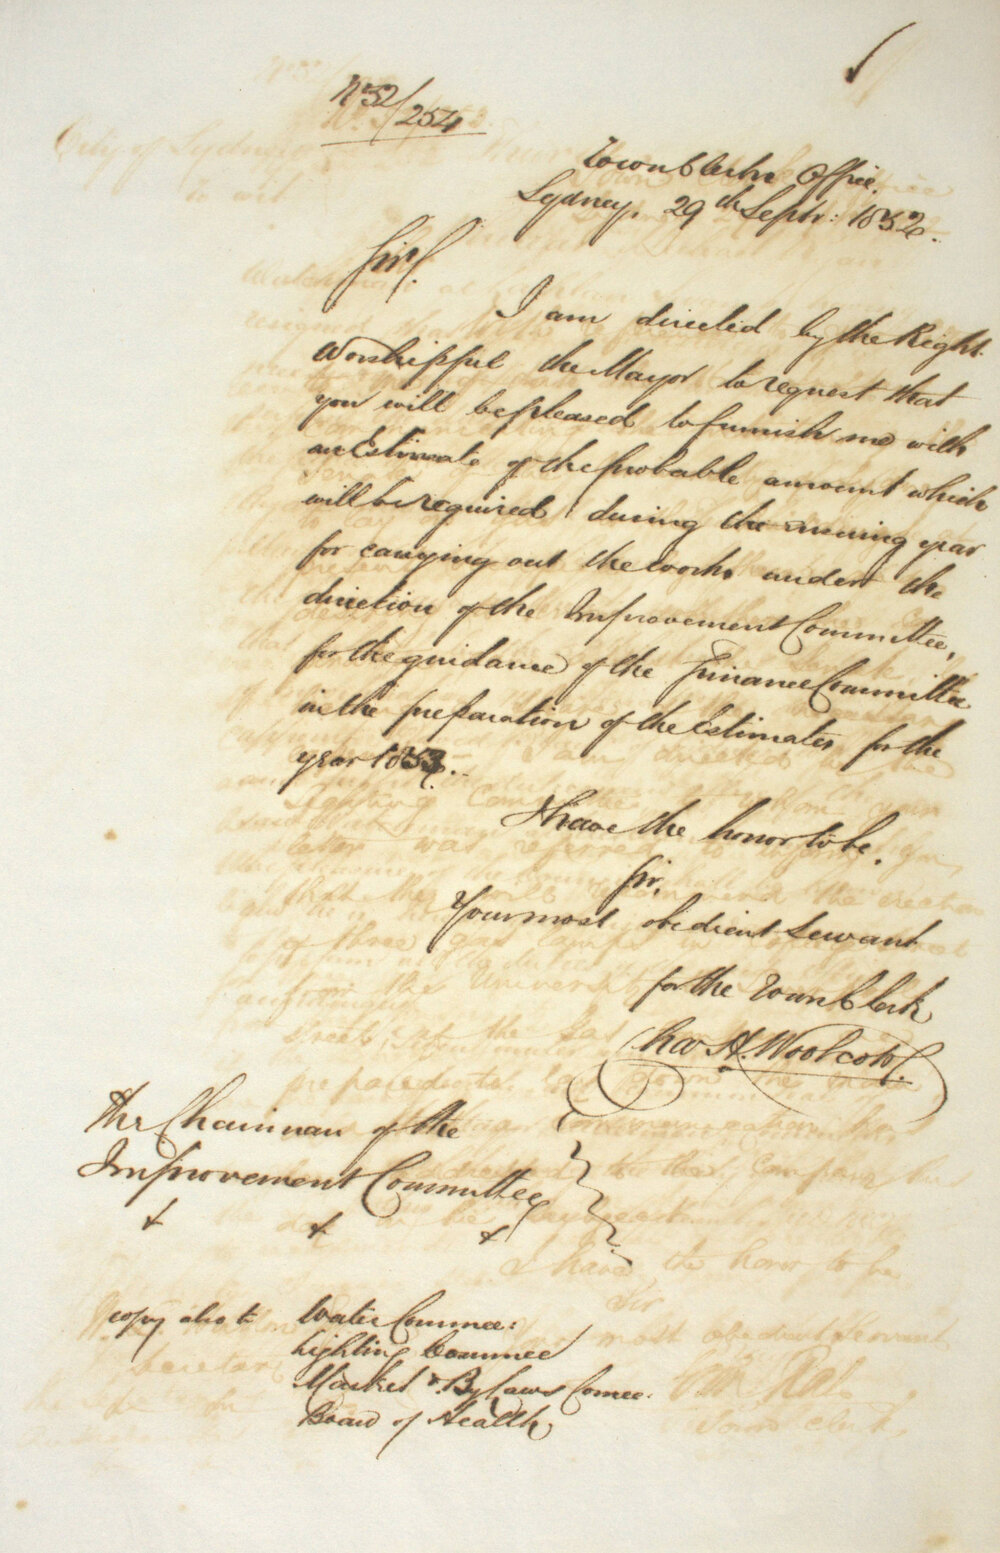 No. 52/254
Town Clerks Office.
Sydney, 29th Septr: 1852.
Sir,
I am directed by the Right
Worshipful the Mayor to request that
you will be pleased to furnish me with
an Estimate of the probable amount which
will be required during the ensuing year
for carrying out the works under the
direction of the Improvement Committee,
for the guidance of the Finance Committee
in the preparation of the Estimates for the
year 1853.
I have the honor to be,
Sir,
Your most obedient Servant
for the Town Clerk
Chas H. Woolcott.
The Chairman of the
Improvement Committee
copy also to Water Commee:
Lighting Commee
Market & By Laws Comee.
Board of Health